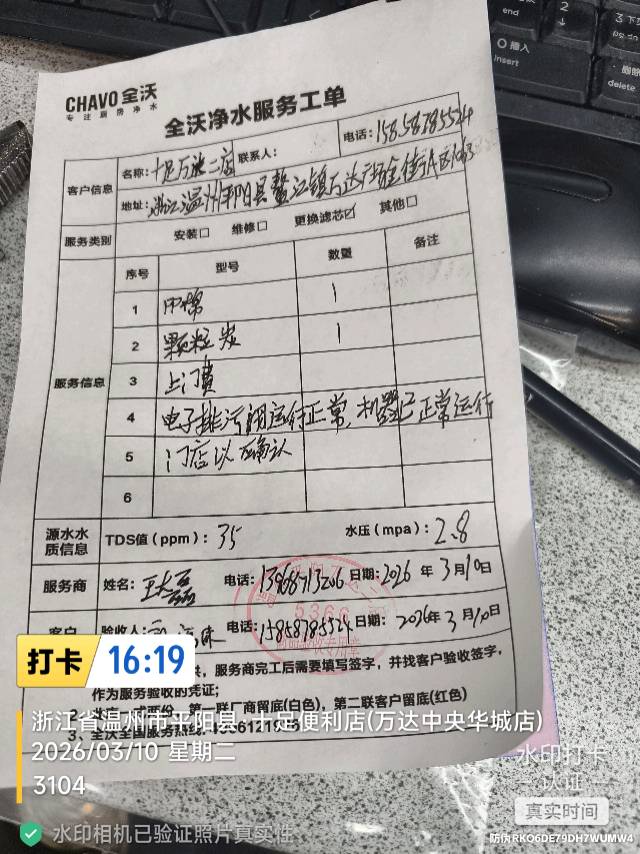 end
2
3
insert
0 插入
删除
delete
CHAVO 全沃
专注厨房净水
全沃净水服务工单
客户信息
名称: 十足万达二店 联系人: 电话: 15858785524
地址: 浙江温州平阳县鳌江镇万达广场金街A区
服务类别 安装□ 维修□ 更换滤芯☑ 其他□
服务信息
序号 型号 数量 备注
1 PP棉 1
2 颗粒炭 1
3 上门费
4 电子排污阀运行正常,机器已正常运行
5 门店以确认
6
源水水质信息 TDS值(ppm): 35 水压(mpa): 2.8
服务商 姓名: 电话: 13968713206 日期: 2026 年 3月10日
客户 验收人: 电话: 15858785524 日期: 2026年 3月10日
5366
服务商完工后需要填写签字,并找客户验收签字,
作为服务验收的凭证;
第一联厂商留底(白色),第二联客户留底(红色)
3、全沃全国服务热线:
打卡 16:19
浙江省温州市平阳县·十足便利店(万达中央华城店)
2026/03/10 星期二
3104
水印相机已验证照片真实性
水印打卡
认证
真实时间
防伪RKO6DE79DH7WUMW4